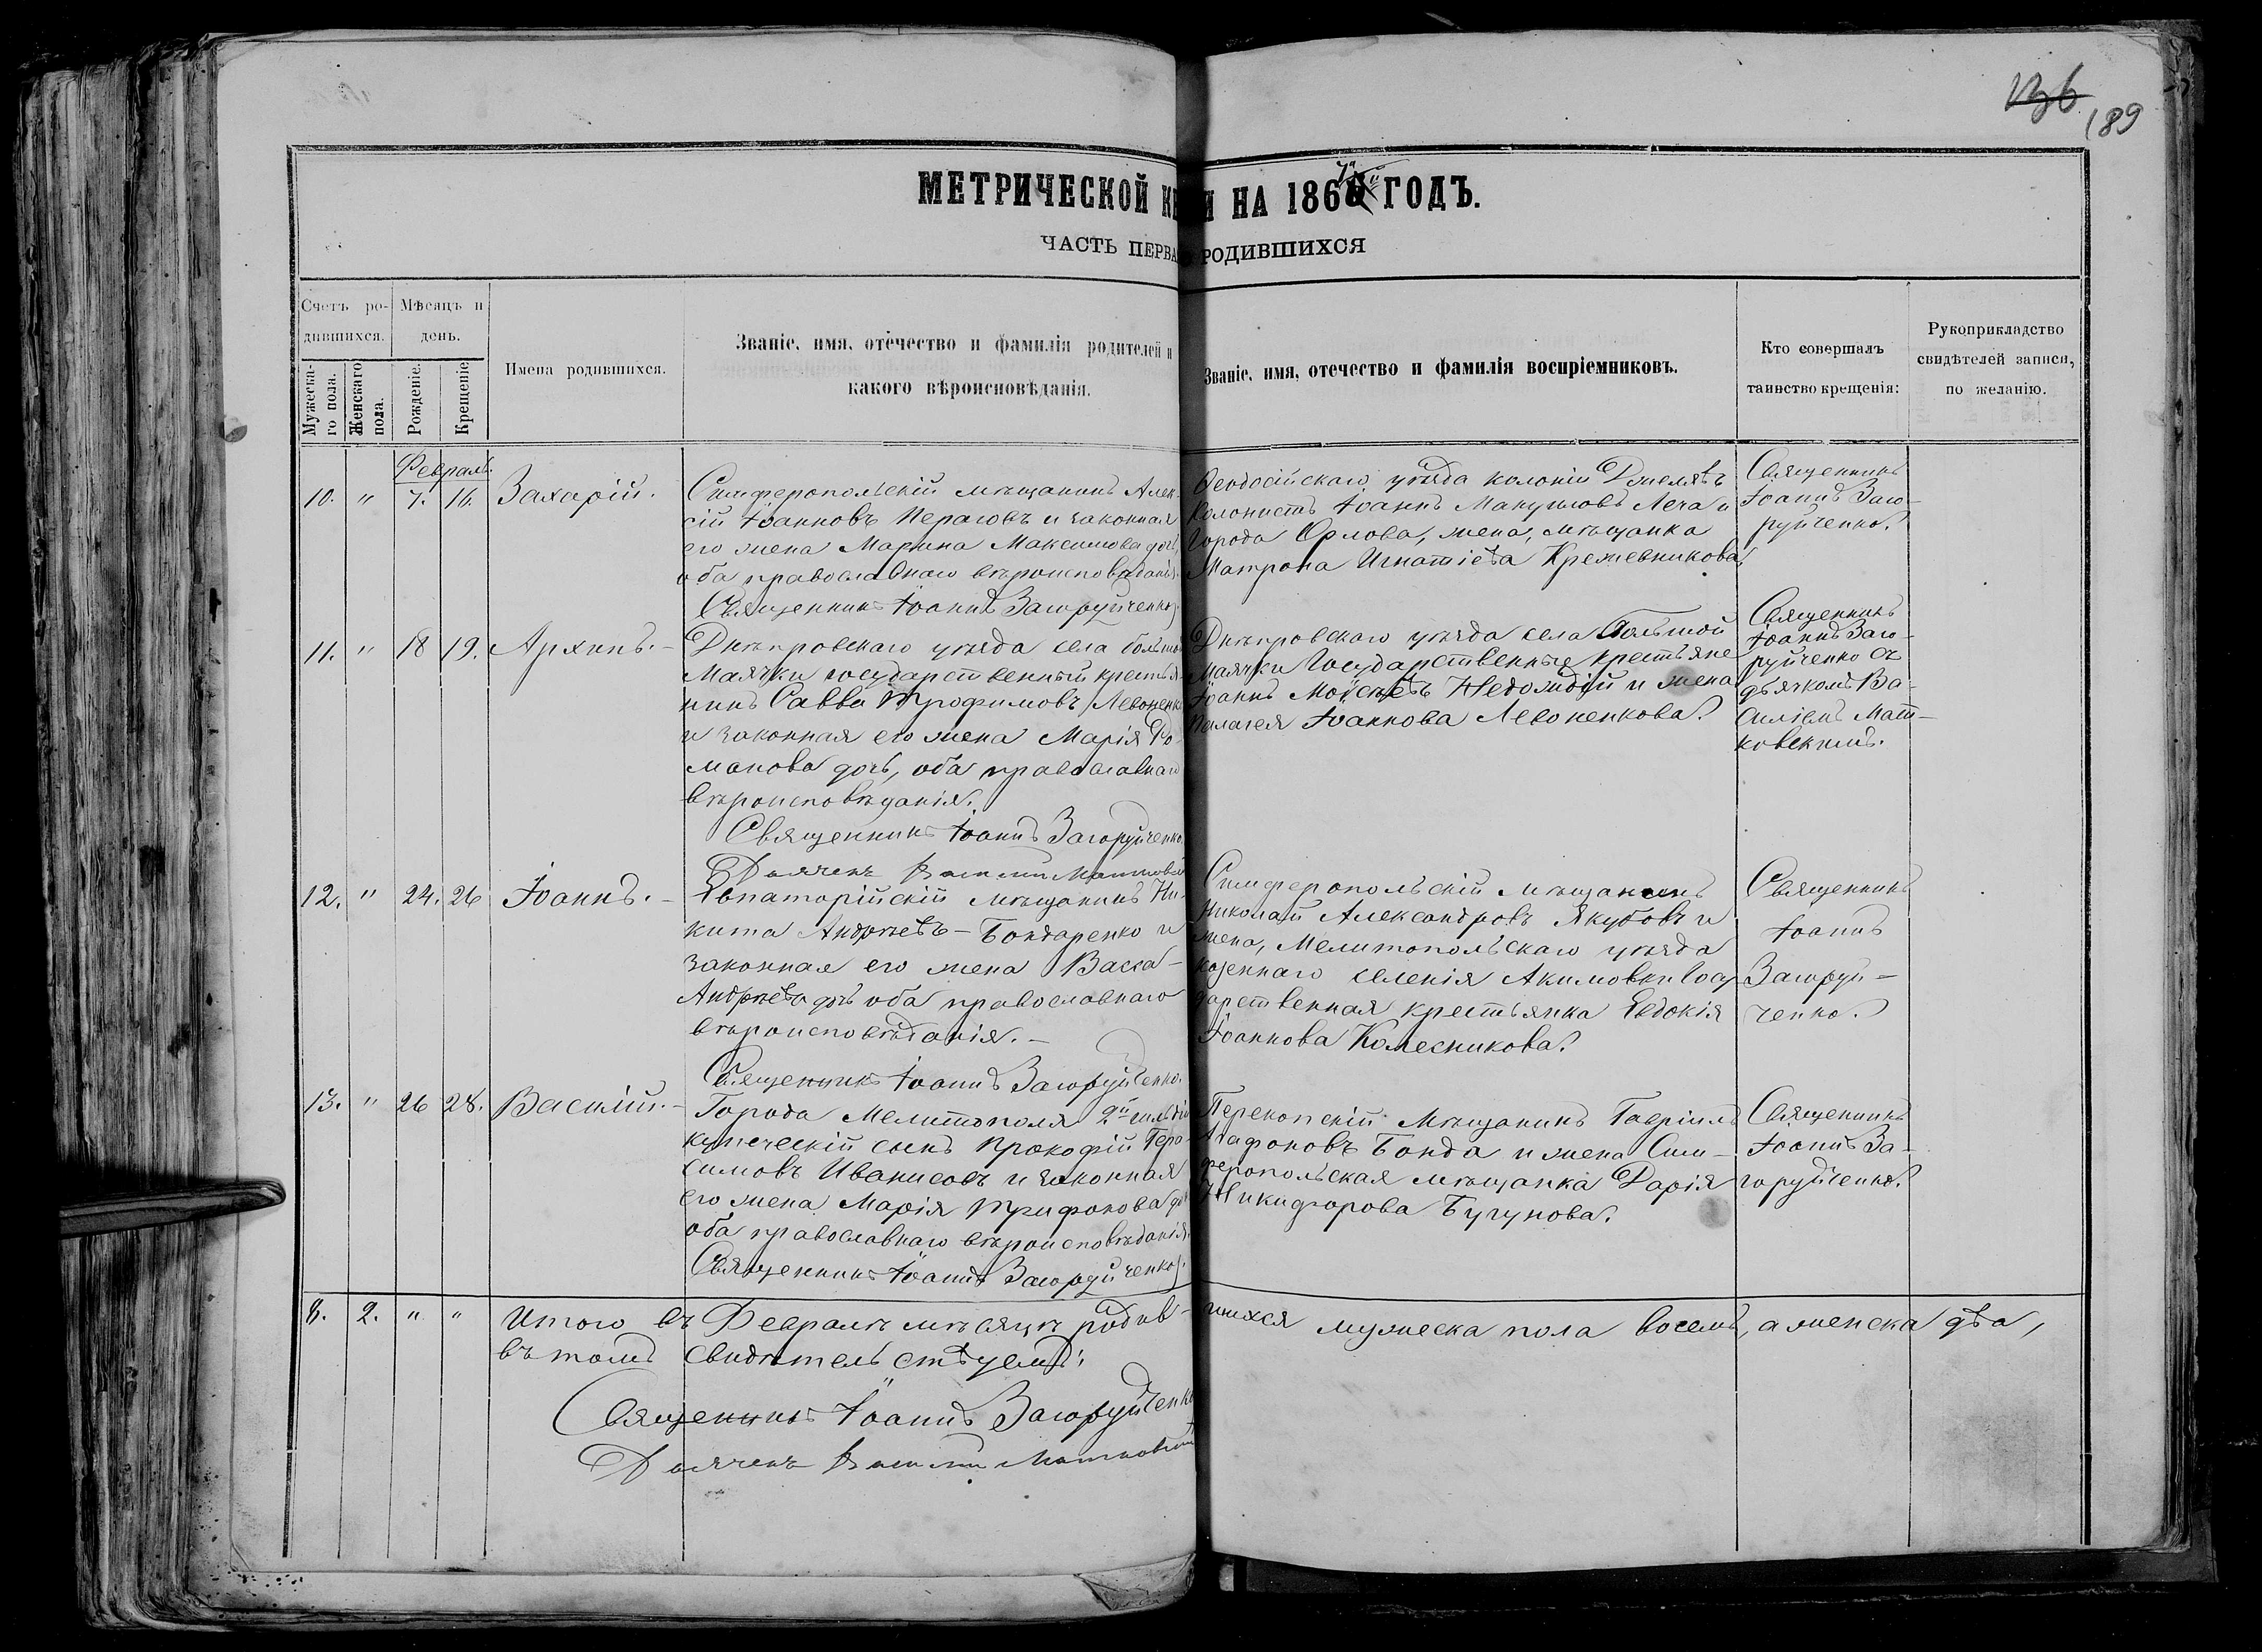 136
189
МЕТРИЧЕСКОЙ КН И НА 1867й ГОДЪ.
ЧАСТЬ ПЕРВА РОДИВШИХСЯ
Счетъ ро-
дившихся.
Мѣсяцъ и
день.
Мужеска-
го пола.
Женскаго
пола.
Рожденіе.
Крещеніе.
Имена родившихся.
Званіе, имя, отечество и фамилія родителей и
какого вѣроисповѣданія.
Званіе, имя, отечество и фамилія воспріемниковъ.
Кто совершалъ
таинство крещенія:
Рукоприкладство
свидѣтелей записи,
по желанію.
Февраль.
10. " 7. 16. Захарій.
Симферопольскій мѣщанинъ Алек-
сій Іоанновъ и законная
его жена Марина Максимова дочь,
оба православнаго вѣроисповѣданія.
Священникъ Іоаннъ Загоруйченко.
Ѳеодосійскаго уѣзда колоніи
Колонистъ Іоаннъ и
Города Орлова, жена, мѣщанка
Матрона Игнатіева Кремевникова.
Священникъ
Іоаннъ Заго-
руйченко.
11. " 18 19. Архипъ. -
Днѣпровскаго уѣзда села больш
Маячки государственный крестья-
нинъ Савва Трофимовъ Левоненко
и законная его жена Марія Ро-
манова дочь, оба православнаго
вѣроисповѣданія.
Священникъ Іоаннъ Загоруйченко.
Дьячекъ Василій Матковскій
Днѣпровскаго уѣзда села Большой
Маячки Государственные крестьяне
Іоаннъ Моѵсеевъ и жена
Палагея Іоаннова Левоненкова.
Священникъ
Іоаннъ Заго-
руйченко съ
дьячкомъ Ва-
силіемъ Мат-
ковскимъ.
12. " 24. 26 Іоаннъ. -
Евпаторійскій мѣщанинъ Ни-
кита Андреевъ - Бондаренко и
законная его жена Васса -
Андреева дочь оба православнаго
вѣроисповѣданія. -
Священникъ Іоаннъ Загоруйченко.
Симферопольскій мѣщанинъ
Николай Александровъ Якубовъ и
жена, Мелитопольскаго уѣзда
казеннаго селенія Акимовки Госу
дарственная крестьянка Евдокія
Іоаннова Колесникова.
Священникъ
Іоаннъ
Загоруй-
ченко.
13. " 26 28. Василій. -
Города Мелитополя 2й гильдіи
купеческій сынъ Прокофій Гера-
симовъ и законная
его жена Марія Трифонова до
оба православнаго вѣроисповѣданія.
Священникъ Іоаннъ Загоруйченко.
Перекопскій Мѣщанинъ Гавріилъ
Агафоновъ Бонда и жена Сим-
феропольская мѣщанка Дарія
Никифорова Бугунова.
Священникъ
Іоаннъ За-
горуйченко.
8. 2. " " Итого въ Февралѣ мѣсяцѣ родив- шихся мужеска пола восемь, а женска два,
въ томъ свидѣтельствуемъ:
Священникъ Іоаннъ Загоруйченко
Дьячекъ Василій Матковскій